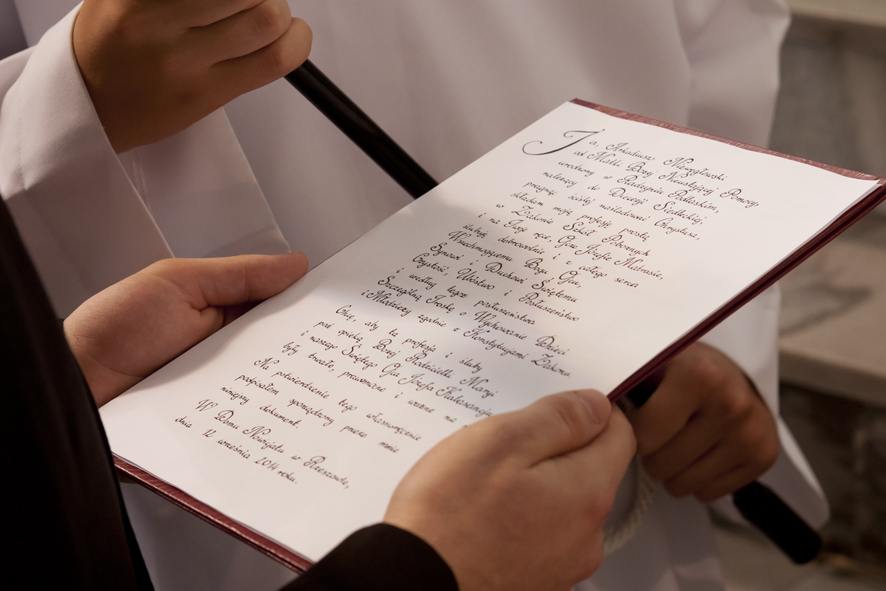 Ja, Arkadiusz
od Matki Bożej Nieustającej Pomocy
urodzony w Radzyniu Podlaskim,
należący do Diecezji Siedleckiej,
pragnąc ściślej naśladować Chrystusa,
składam moją profesję prostą
w Zakonie Szkół Pobożnych
i na Twoje ręce, Ojcze Józefie Matrasie,
ślubuję dobrowolnie i z całego serca
Wszechmogącemu Bogu Ojcu,
Synowi i Duchowi Świętemu
Czystość, Ubóstwo i Posłuszeństwo
i według tegoż posłuszeństwa
Szczególną Troskę o Wychowanie Dzieci
i Młodzieży zgodnie z Konstytucjami Zakonu.
Chcę, aby ta profesja i śluby
pod opieką Bożej Rodzicielki Maryi
i naszego Świętego Ojca Józefa Kalasancjusza
były trwałe, prawomocne i ważne na
Na potwierdzenie tego własnoręcznie
podpisałem sporządzony przeze mnie
niniejszy dokument.
W Domu Nowicjatu w Rzeszowie,
dnia 12 września 2014 roku.